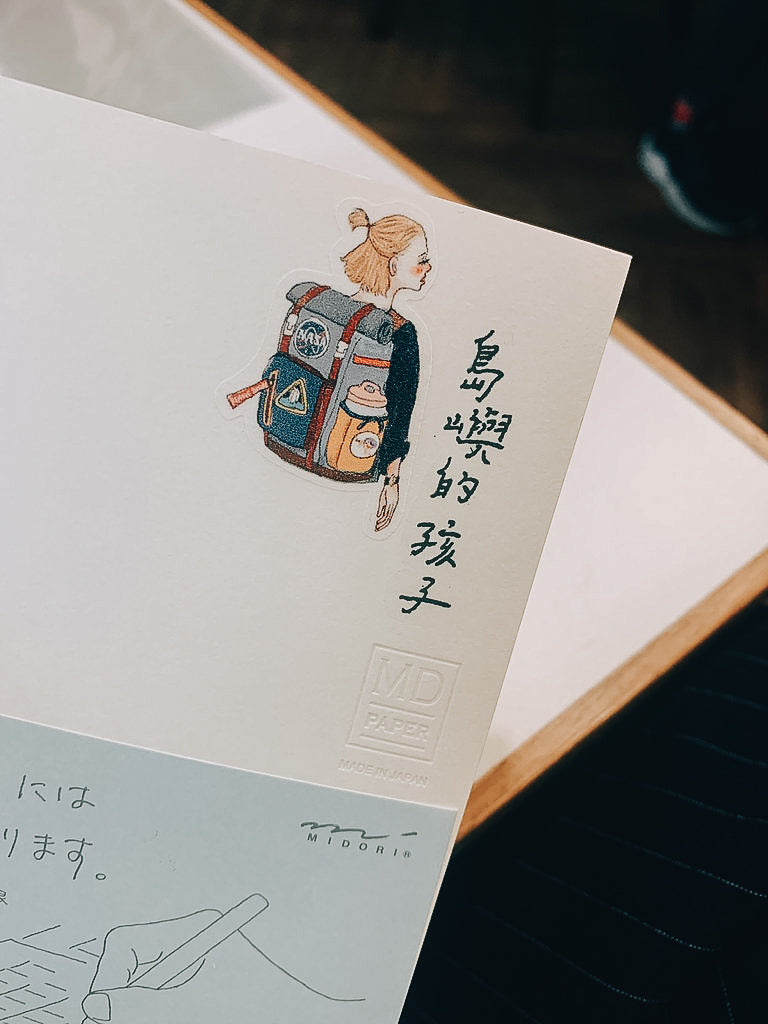 NASA
島嶼的孩子
MD
PAPER
MADE IN JAPAN
には
ります。
MIDORI®